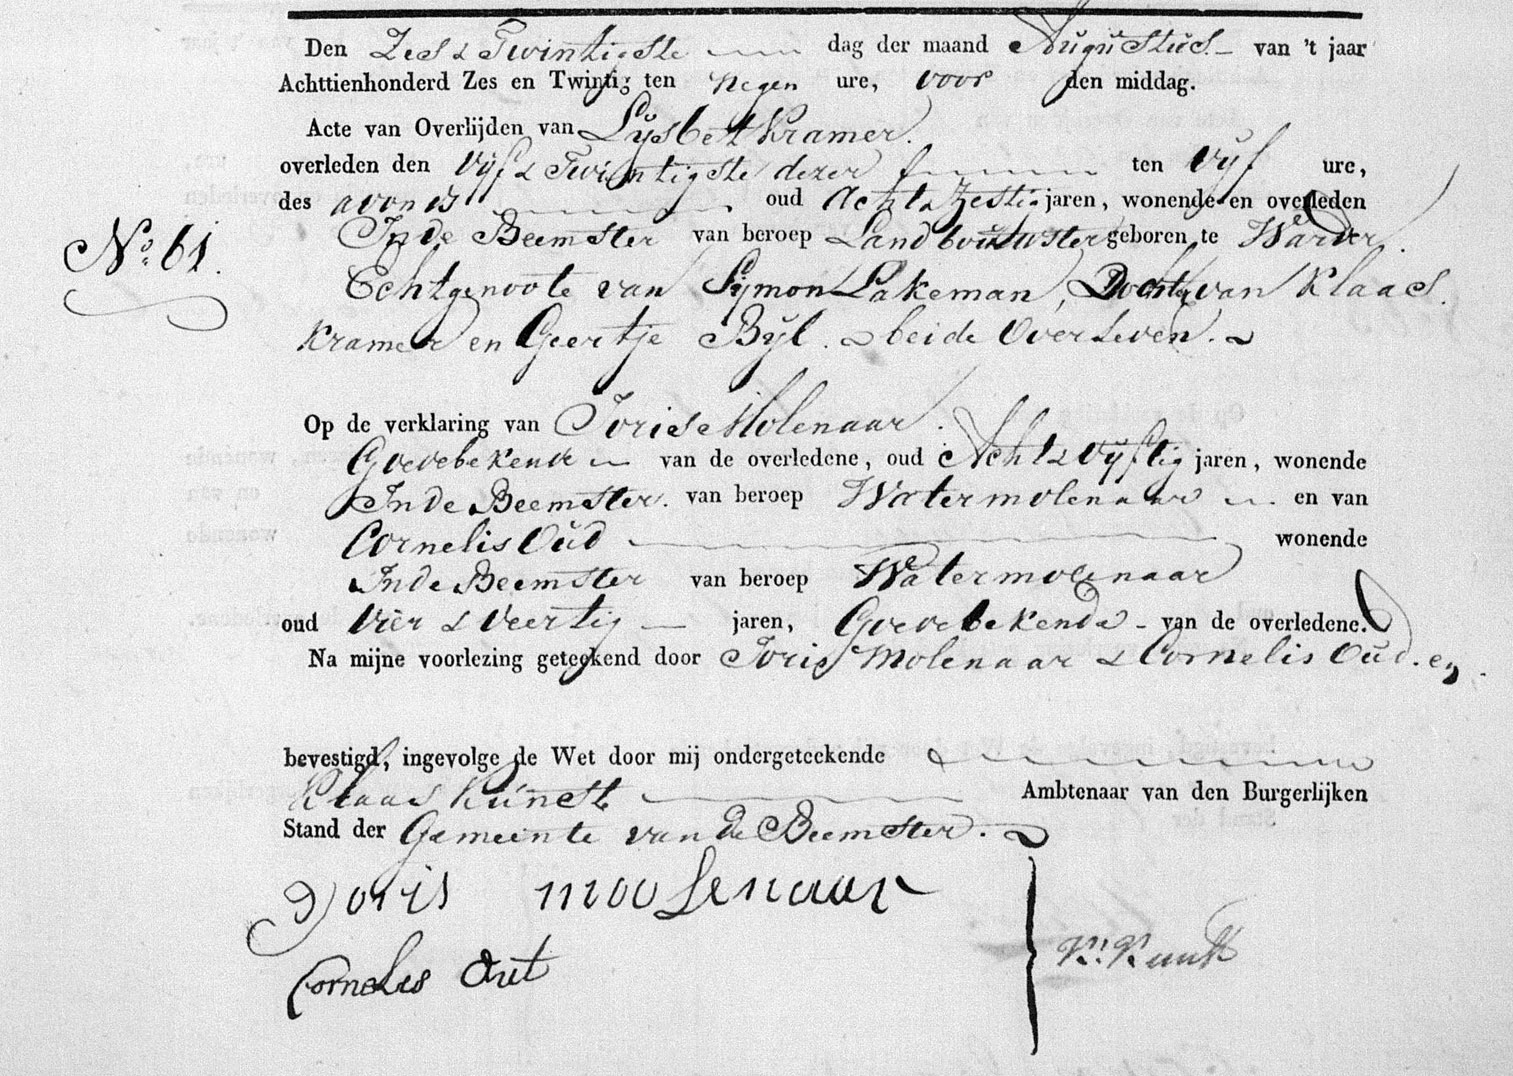 Den Zes & Twintigste dag der maand Augustus van 't jaar
Achttienhonderd Zes en Twintig ten negen ure, voor den middag.
Acte van Overlijden van Lijsbet Kramer.
overleden den Vijf & Twintigste dezer ten Vijf ure,
des avonds oud Acht & Zestig jaren, wonende en overleden
No. 61.
In de Beemster van beroep Landbouwster geboren te Warder.
Echtgenoote van Sijmon Lakeman, Dochter van Klaas
Kramer en Geertje Bijl. beide Overleden.
Op de verklaring van Joris Molenaar.
Goedebekende van de overledene, oud Acht & Vijftig jaren, wonende
In de Beemster. van beroep Watermolenaar en van
Cornelis Oud wonende
In de Beemster van beroep Watermolenaar
oud Vier & Veertig jaren, Goedebekende van de overledene.
Na mijne voorlezing geteekend door Joris Molenaar & Cornelis Oud. en
bevestigd, ingevolge de Wet door mij ondergeteekende
Klaas Kunst Ambtenaar van den Burgerlijken
Stand der Gemeente van de Beemster.
Joris moolenaar
Cornelis Out
K. Kunst